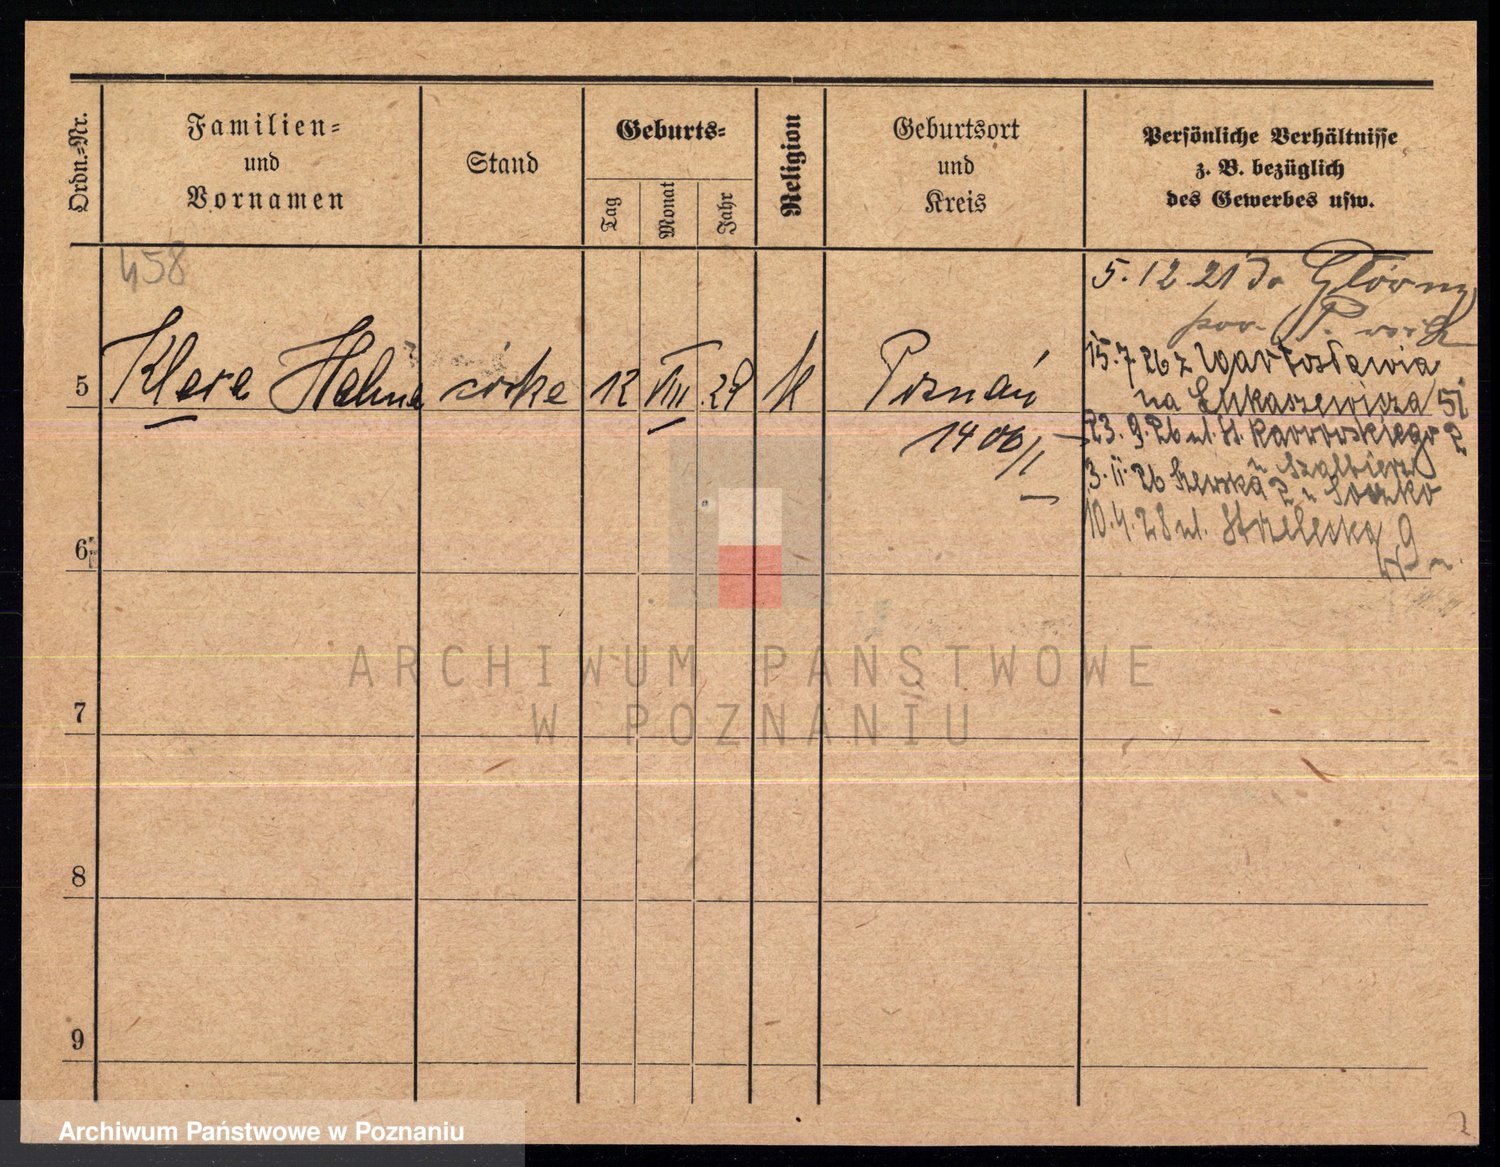 Ordn.-Nr.
Familien-
und
Vornamen
Stand
Geburts-
Tag
Monat
Jahr
Religion
Geburtsort
und
Kreis
Persönliche Verhältnisse
z. B. bezüglich
des Gewerbes usw.
458
5
Klara
córka
12 VIII 29
k
Poznań
1406/I
5. 12. 21 do
15.7.26 z
na Łukaszewicza 51
23. 9. 26 ul.
3. 11. 26 Szewska 2 u
10.4.28 ul. Strzelecka 9
6
7
8
9
ARCHIWUM PAŃSTWOWE
W POZNANIU
Archiwum Państwowe w Poznaniu
2